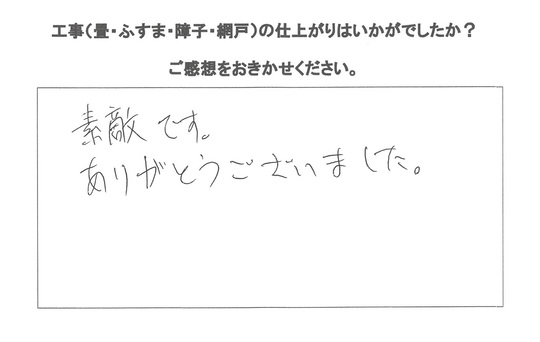 工事(畳・ふすま・障子・網戸)の仕上がりはいかがでしたか？
ご感想をおきかせください。
素敵です。
ありがとうございました。